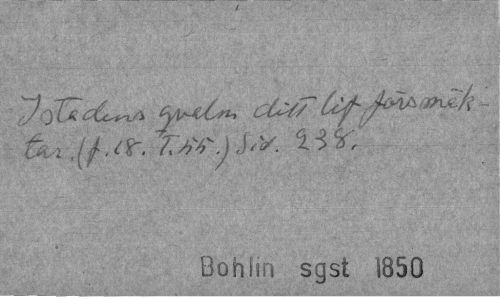 I stadens qvalm ditt lif försmäk-
tar. (f. 18. T. 55.) Sid. 238.
Bohlin sgst 1850